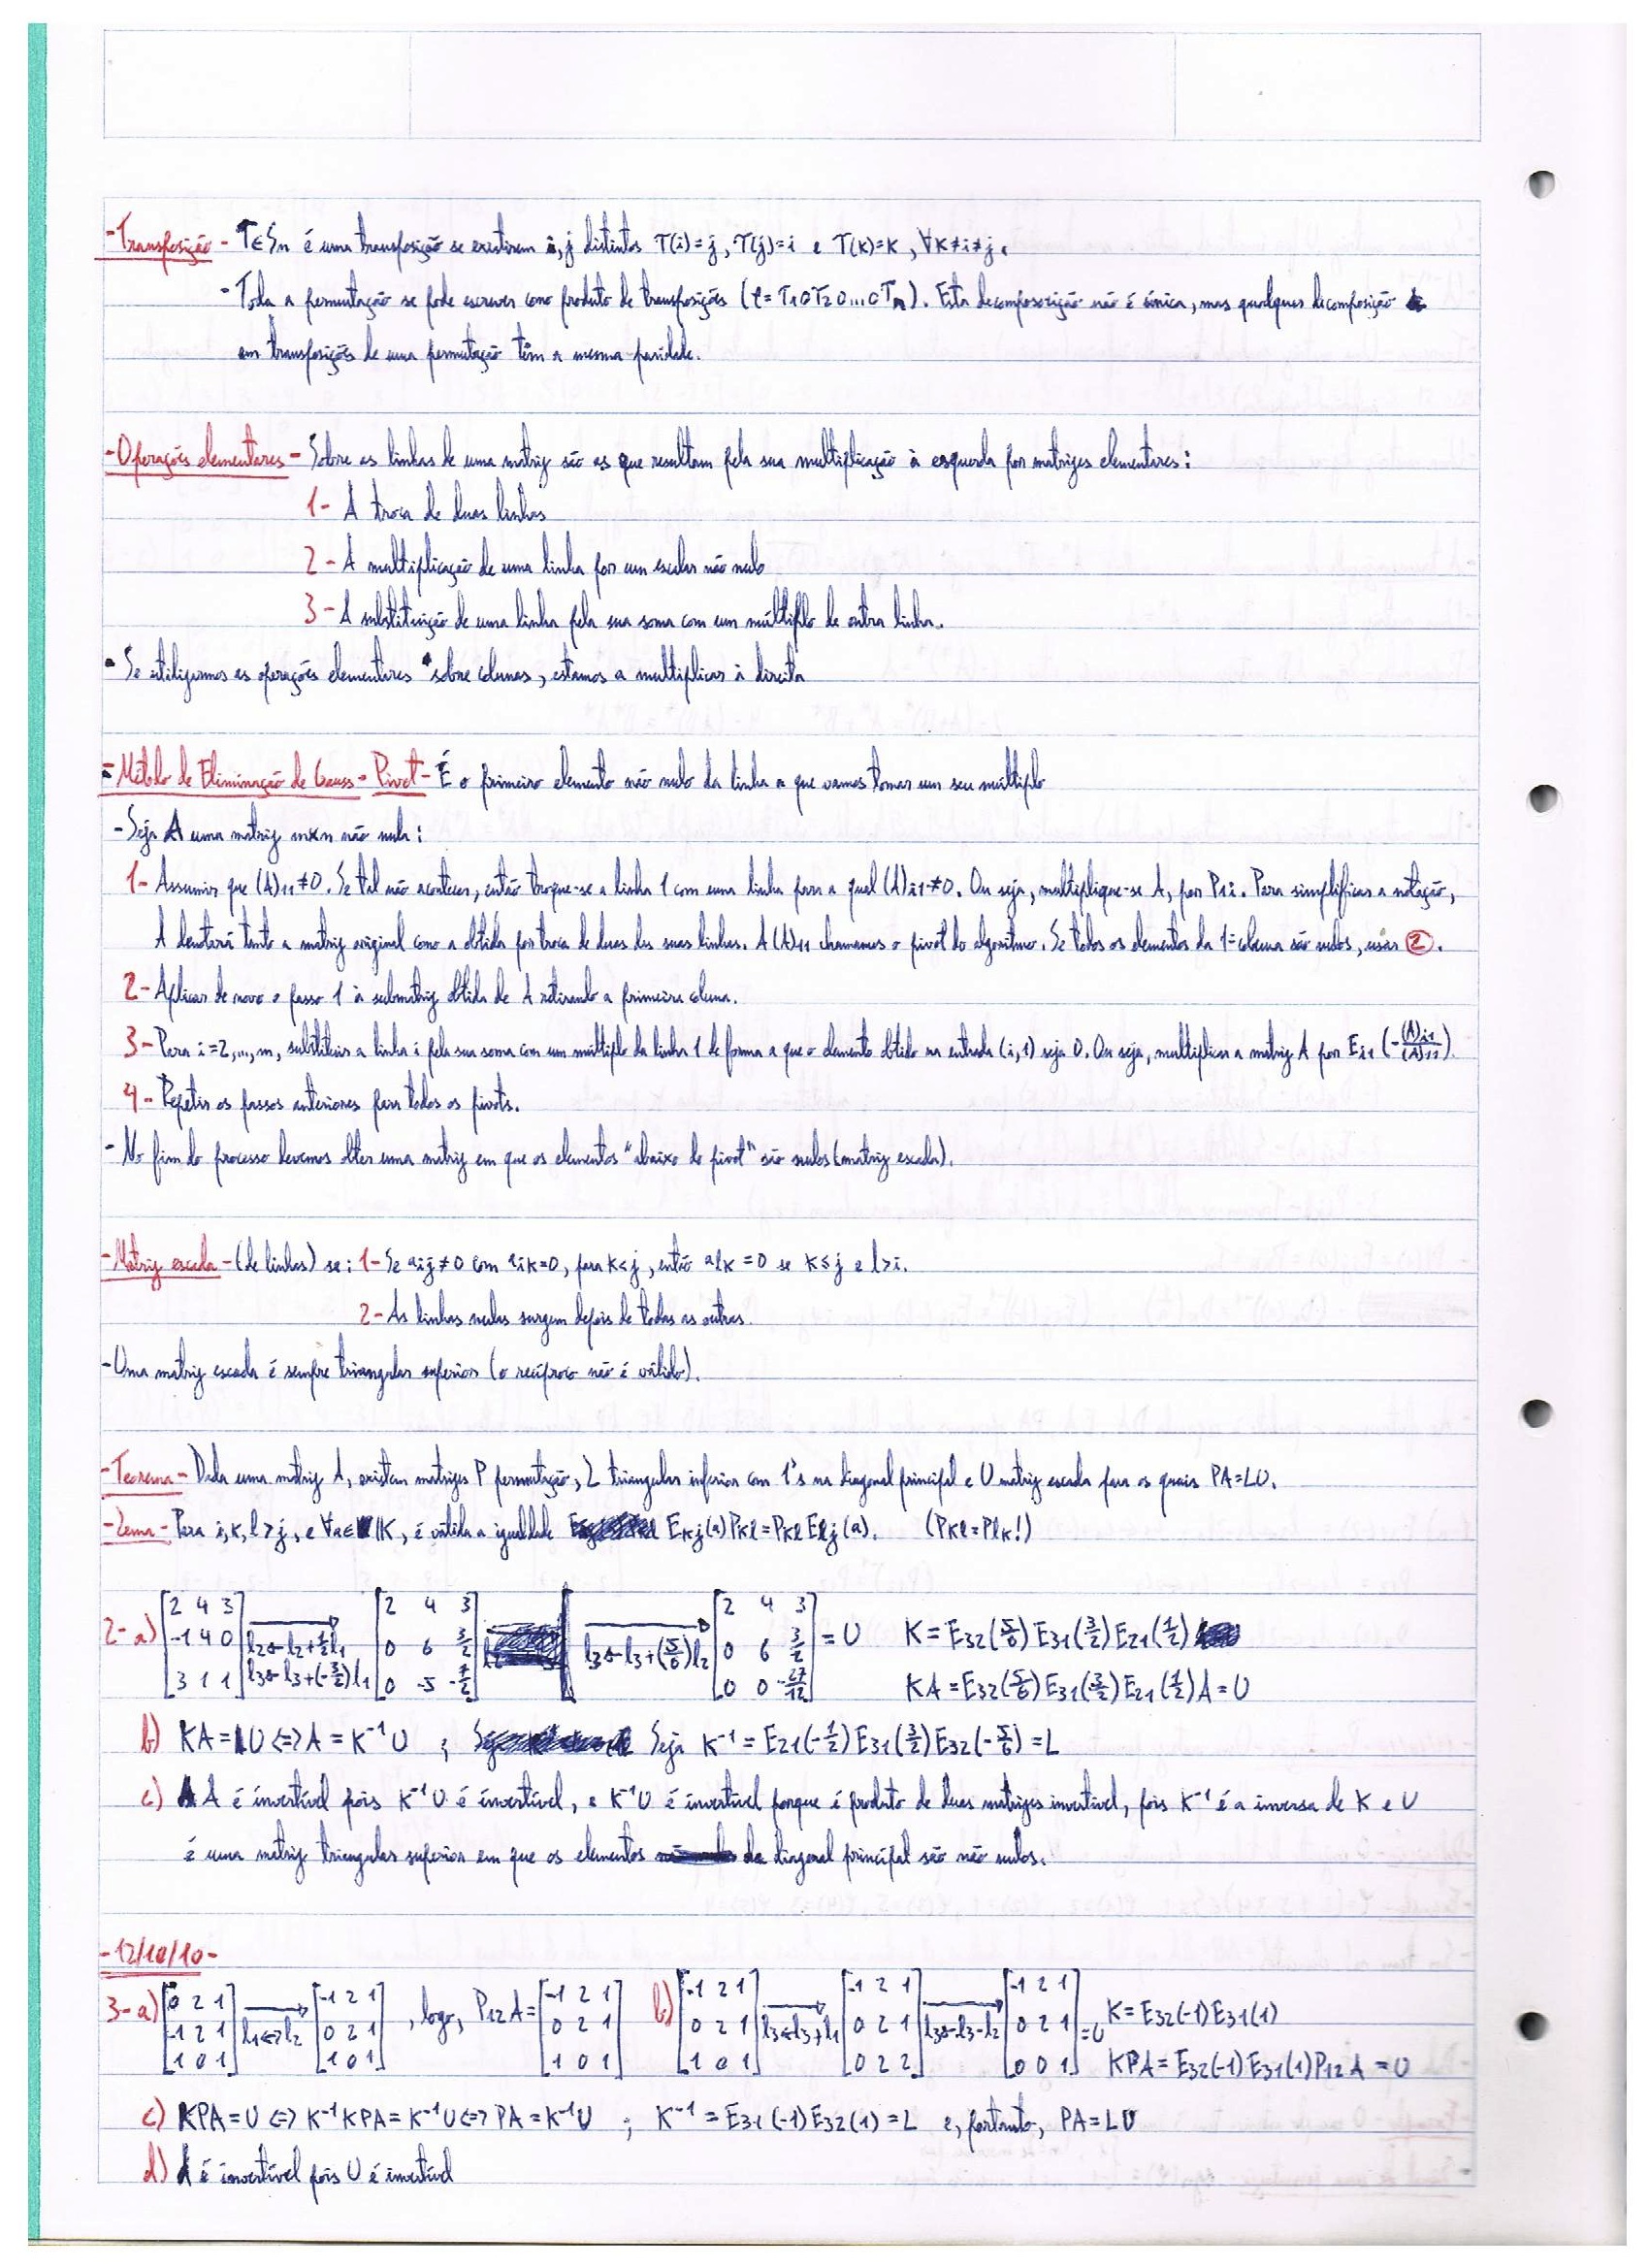 -Transposição - T∈Sn é uma transposição se existirem i, j distintos T(i)=j, T(j)=i e T(k)=k, ∀k≠i≠j.
- Toda a permutação se pode escrever como produto de transposições (φ=T1∘T2∘...∘Tn). Esta decomposição não é única, mas qualquer decomposição
em transposições de uma permutação têm a mesma paridade.
-Operações elementares - Sobre as linhas de uma matriz são as que resultam pela sua multiplicação à esquerda por matrizes elementares:
1- A troca de duas linhas
2- A multiplicação de uma linha por um escalar não nulo
3- A substituição de uma linha pela sua soma com um múltiplo de outra linha.
- Se utilizarmos as operações elementares sobre colunas, estamos a multiplicar à direita
-Método de Eliminação de Gauss - Pivot - É o primeiro elemento não nulo da linha a que vamos tomar um seu múltiplo
- Seja A uma matriz mxn não nula:
1- Assumir que (A)11≠0. Se tal não acontecer, então troque-se a linha 1 com uma linha para a qual (A)i1≠0. Ou seja, multiplique-se A, por P1i. Para simplificar a notação,
A denotará tanto a matriz original como a obtida por troca de duas das suas linhas. A (A)11 chamamos o pivot do algoritmo. Se todos os elementos da 1ª coluna são nulos, usar ②.
2- Aplicar de novo o passo 1 à submatriz obtida de A retirando a primeira coluna.
3- Para i=2,...,m, substituir a linha i pela sua soma com um múltiplo da linha 1 de forma a que o elemento obtido na entrada (i,1) seja 0. Ou seja, multiplicar a matriz A por Ei1(-(A)i1/(A)11).
4- Repetir os passos anteriores para todos os pivots.
- No fim do processo devemos obter uma matriz em que os elementos "abaixo do pivot" são nulos (matriz escada).
-Matriz escada - (de linhas) se: 1- Se aij≠0 com aik=0, para k<j, então alk=0 se k≤j e l>i.
2- As linhas nulas surgem depois de todas as outras.
- Uma matriz escada é sempre triangular superior (o recíproco não é válido).
-Teorema - Dada uma matriz A, existem matrizes P permutação, L triangular inferior com 1's na diagonal principal e U matriz escada para os quais PA=LU.
-Lema - Para i,k,l>j, e ∀a∈K, é válida a igualdade Ekj(a)Pkl=PklElj(a). (Pkl=Plk!)
2-a) [2 4 3; -1 4 0; 3 1 1] l2←l2+1/2l1 l3←l3+(-3/2)l1 [2 4 3; 0 6 3/2; 0 -5 -7/2] l3←l3+(5/6)l2 [2 4 3; 0 6 3/2; 0 0 -27/12] =U K=E32(5/6)E31(3/2)E21(1/2)
KA=E32(5/6)E31(3/2)E21(1/2)A=U
b) KA=U⇔A=K⁻¹U ; Seja K⁻¹=E21(-1/2)E31(3/2)E32(-5/6)=L
c) A é invertível pois K⁻¹U é invertível, e K⁻¹U é invertível porque é produto de duas matrizes invertível, pois K⁻¹ é a inversa de K e U
é uma matriz triangular superior em que os elementos da diagonal principal são não nulos.
-12/10/10-
3-a) [0 2 1; -1 2 1; 1 0 1] l1↔l2 [-1 2 1; 0 2 1; 1 0 1], logo, P12A=[-1 2 1; 0 2 1; 1 0 1] b) [-1 2 1; 0 2 1; 1 0 1] l3←l3+l1 [-1 2 1; 0 2 1; 0 2 2] l3←l3-l2 [-1 2 1; 0 2 1; 0 0 1]=U K=E32(-1)E31(1)
KPA=E32(-1)E31(1)P12A=U
c) KPA=U⇔K⁻¹KPA=K⁻¹U⇔PA=K⁻¹U ; K⁻¹=E31(-1)E32(1)=L e, portanto, PA=LU
d) A é invertível pois U é invertível